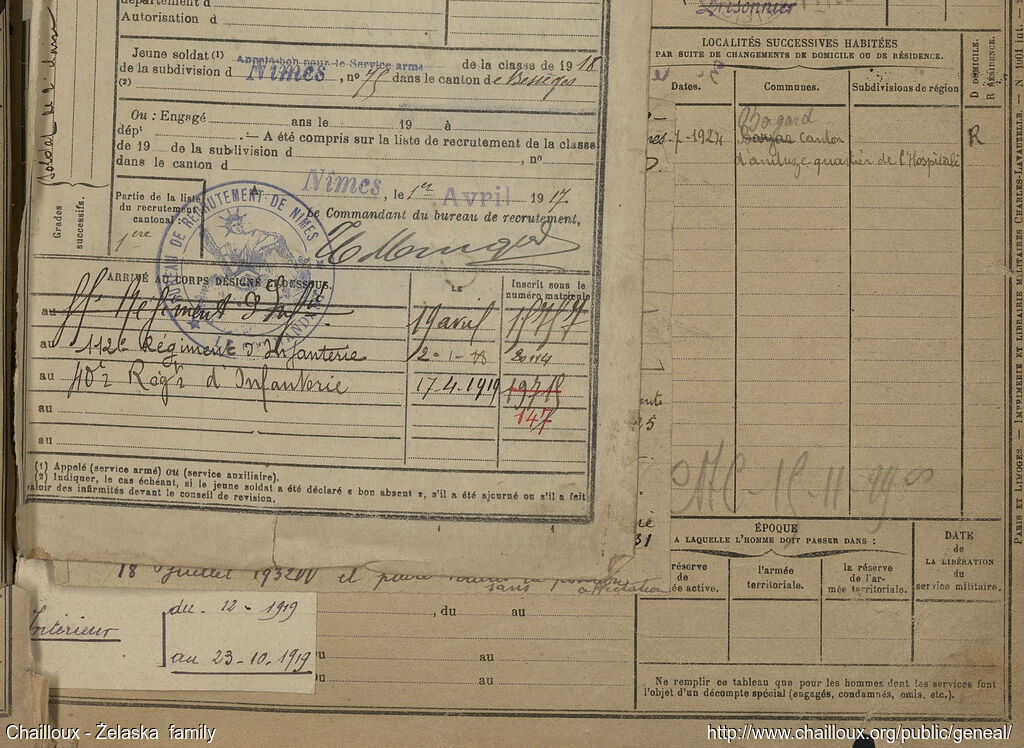 département d
Autorisation d
Soldat de 2e classe
Grades successifs.
Jeune soldat (1) Appelé bon pour le Service armé de la classe de 1918
de la subdivision d Nîmes, n° 75 dans le canton de Bessèges
(2)
Ou : Engagé ans le 19 à
dépt — A été compris sur la liste de recrutement de la classe
de 19 de la subdivision d , n°
dans le canton d
Nîmes, le 1er Avril 1917.
Partie de la liste
du recrutement
cantonal :
1ère
Le Commandant du bureau de recrutement,
BUREAU DE RECRUTEMENT DE NIMES
ARRIVÉ AU CORPS DÉSIGNÉ CI-DESSOUS.
LE
Inscrit sous le
numéro matricule
au Régiment d'Inf. 19 avril
au 112e Régiment d'Infanterie 2-1-18
au 40e Regt d'Infanterie 17.4.1919 19715
au 147
au
(1) Appelé (service armé) ou (service auxiliaire).
(2) Indiquer, le cas échéant, si le jeune soldat a été déclaré « bon absent », s'il a été ajourné ou s'il a fait
valoir des infirmités devant le conseil de revision.
18 Juillet 1932
sans affectation
Intérieur
du - 12 - 1919
au 23-10.1919
, du au
au
au
Prisonnier
LOCALITÉS SUCCESSIVES HABITÉES
PAR SUITE DE CHANGEMENTS DE DOMICILE OU DE RÉSIDENCE.
Dates.
Communes.
Subdivisions de région
D DOMICILE.
R RÉSIDENCE.
Bagard
canton
d'anduze quartier de l'Hospitalé
R
ÉPOQUE
A LAQUELLE L'HOMME DOIT PASSER DANS :
réserve de
ée active.
l'armée
territoriale.
la réserve
de l'ar-
mée territoriale.
DATE
de
LA LIBÉRATION
du
service militaire.
Ne remplir ce tableau que pour les hommes dont les services font
l'objet d'un décompte spécial (engagés, condamnés, omis, etc.).
PARIS ET LIMOGES. — IMPRIMERIE ET LIBRAIRIE MILITAIRES CHARLES-LAVAUZELLE. — N° 1001 int.
Chailloux - Želaska family
http://www.chailloux.org/public/geneal/